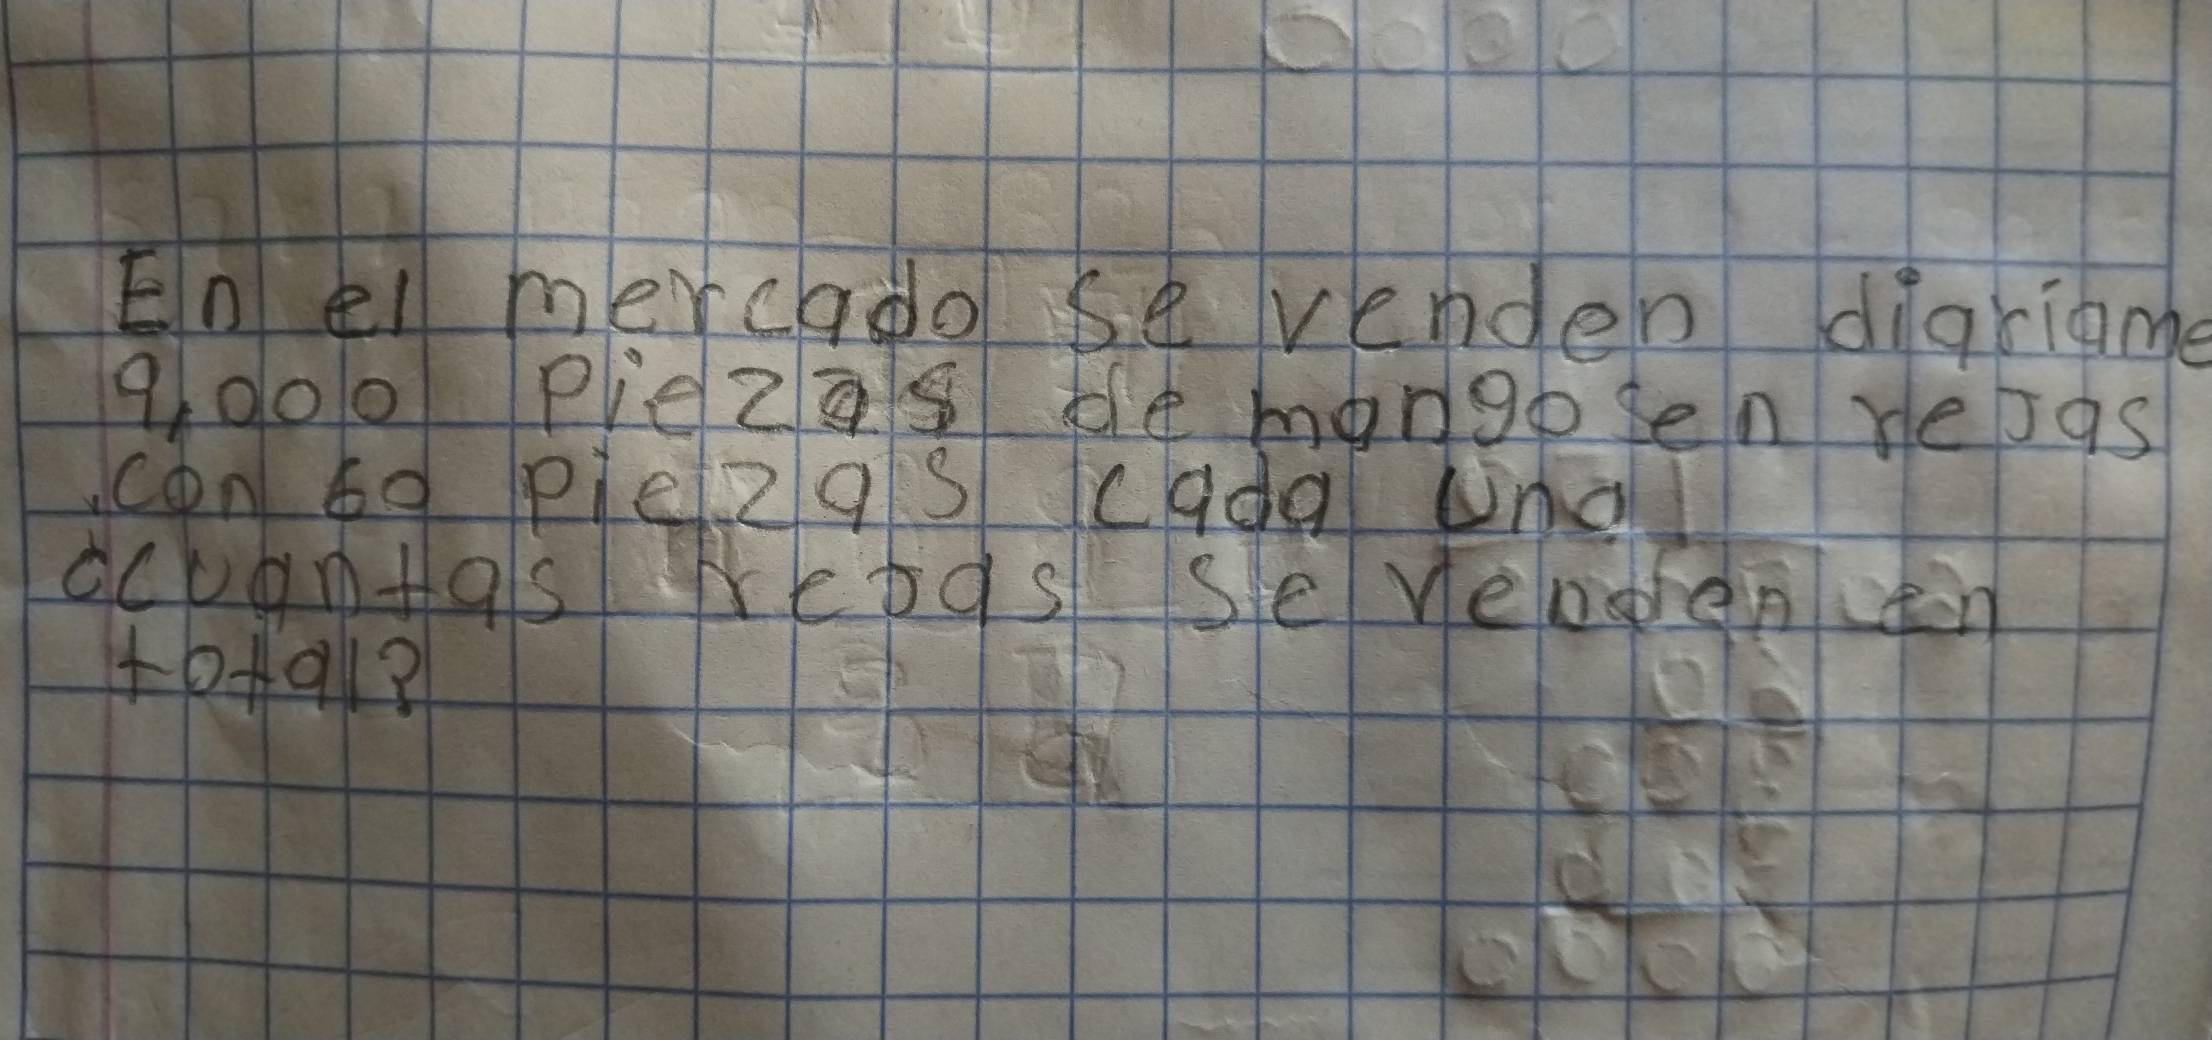 En el mercado se venden diariame
9,000 piezas de mangos en rejas
con 60 piezas cada una
¿cuantas rejas se venden en
total?